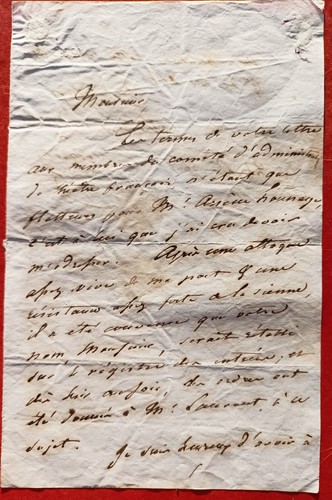 Monsieur
Les termes de votre lettre
aux membres du comité d'administra
du théâtre français n'étant que
flatteurs pour Mr
c'est à lui que j'ai cru devoir
m'adresser. Après une attaque
assez vive de ma part & une
résistance assez forte à la sienne,
il a été convenu que votre
nom Monsieur, serait rétabli
sur le registre des entrées, et
dès hier au soir, des ordres ont
été donnés à Mr Laurent, à ce
sujet.
Je suis heureux d'avoir à